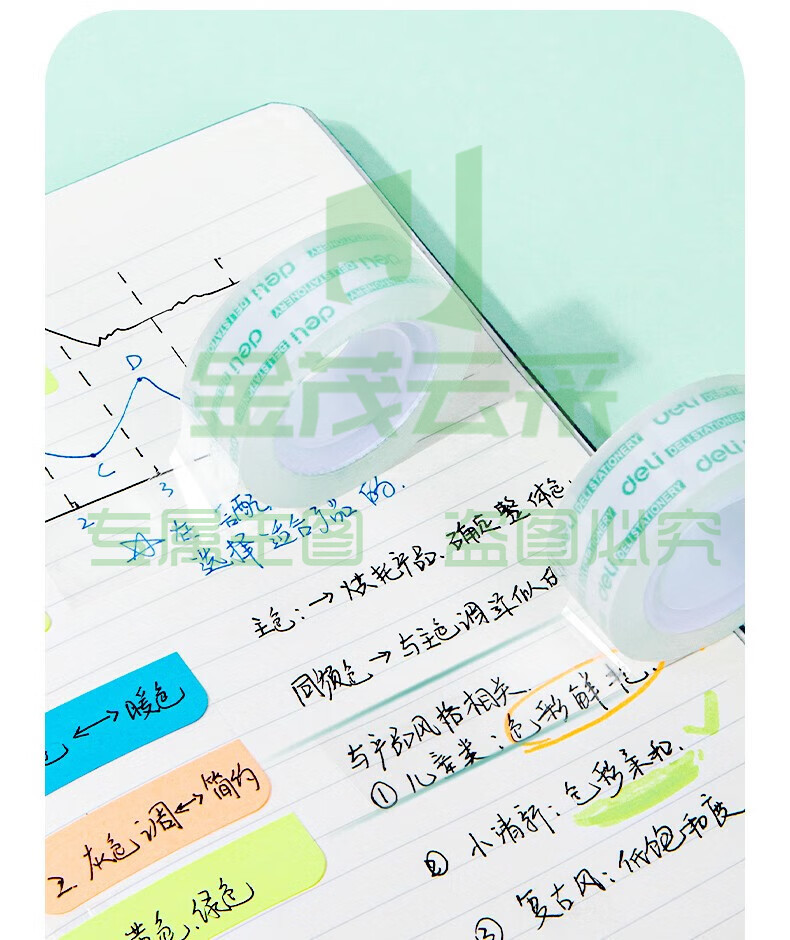 deli DELI STATIONERY
deli DELI STATIONERY
deli
金茂云采
专属主图 盗图必究
D
C
2
3
☆在 搭配
选择适合产品的.
主色:→烘托产品、确定整体色.
同类色→与主色调类似
与产品风格相关.
①儿童类:色彩鲜艳.
②小清新:色彩柔和.
③复古风:低饱和度
色↔暖色
2.灰色调↔简约
黄色、绿色